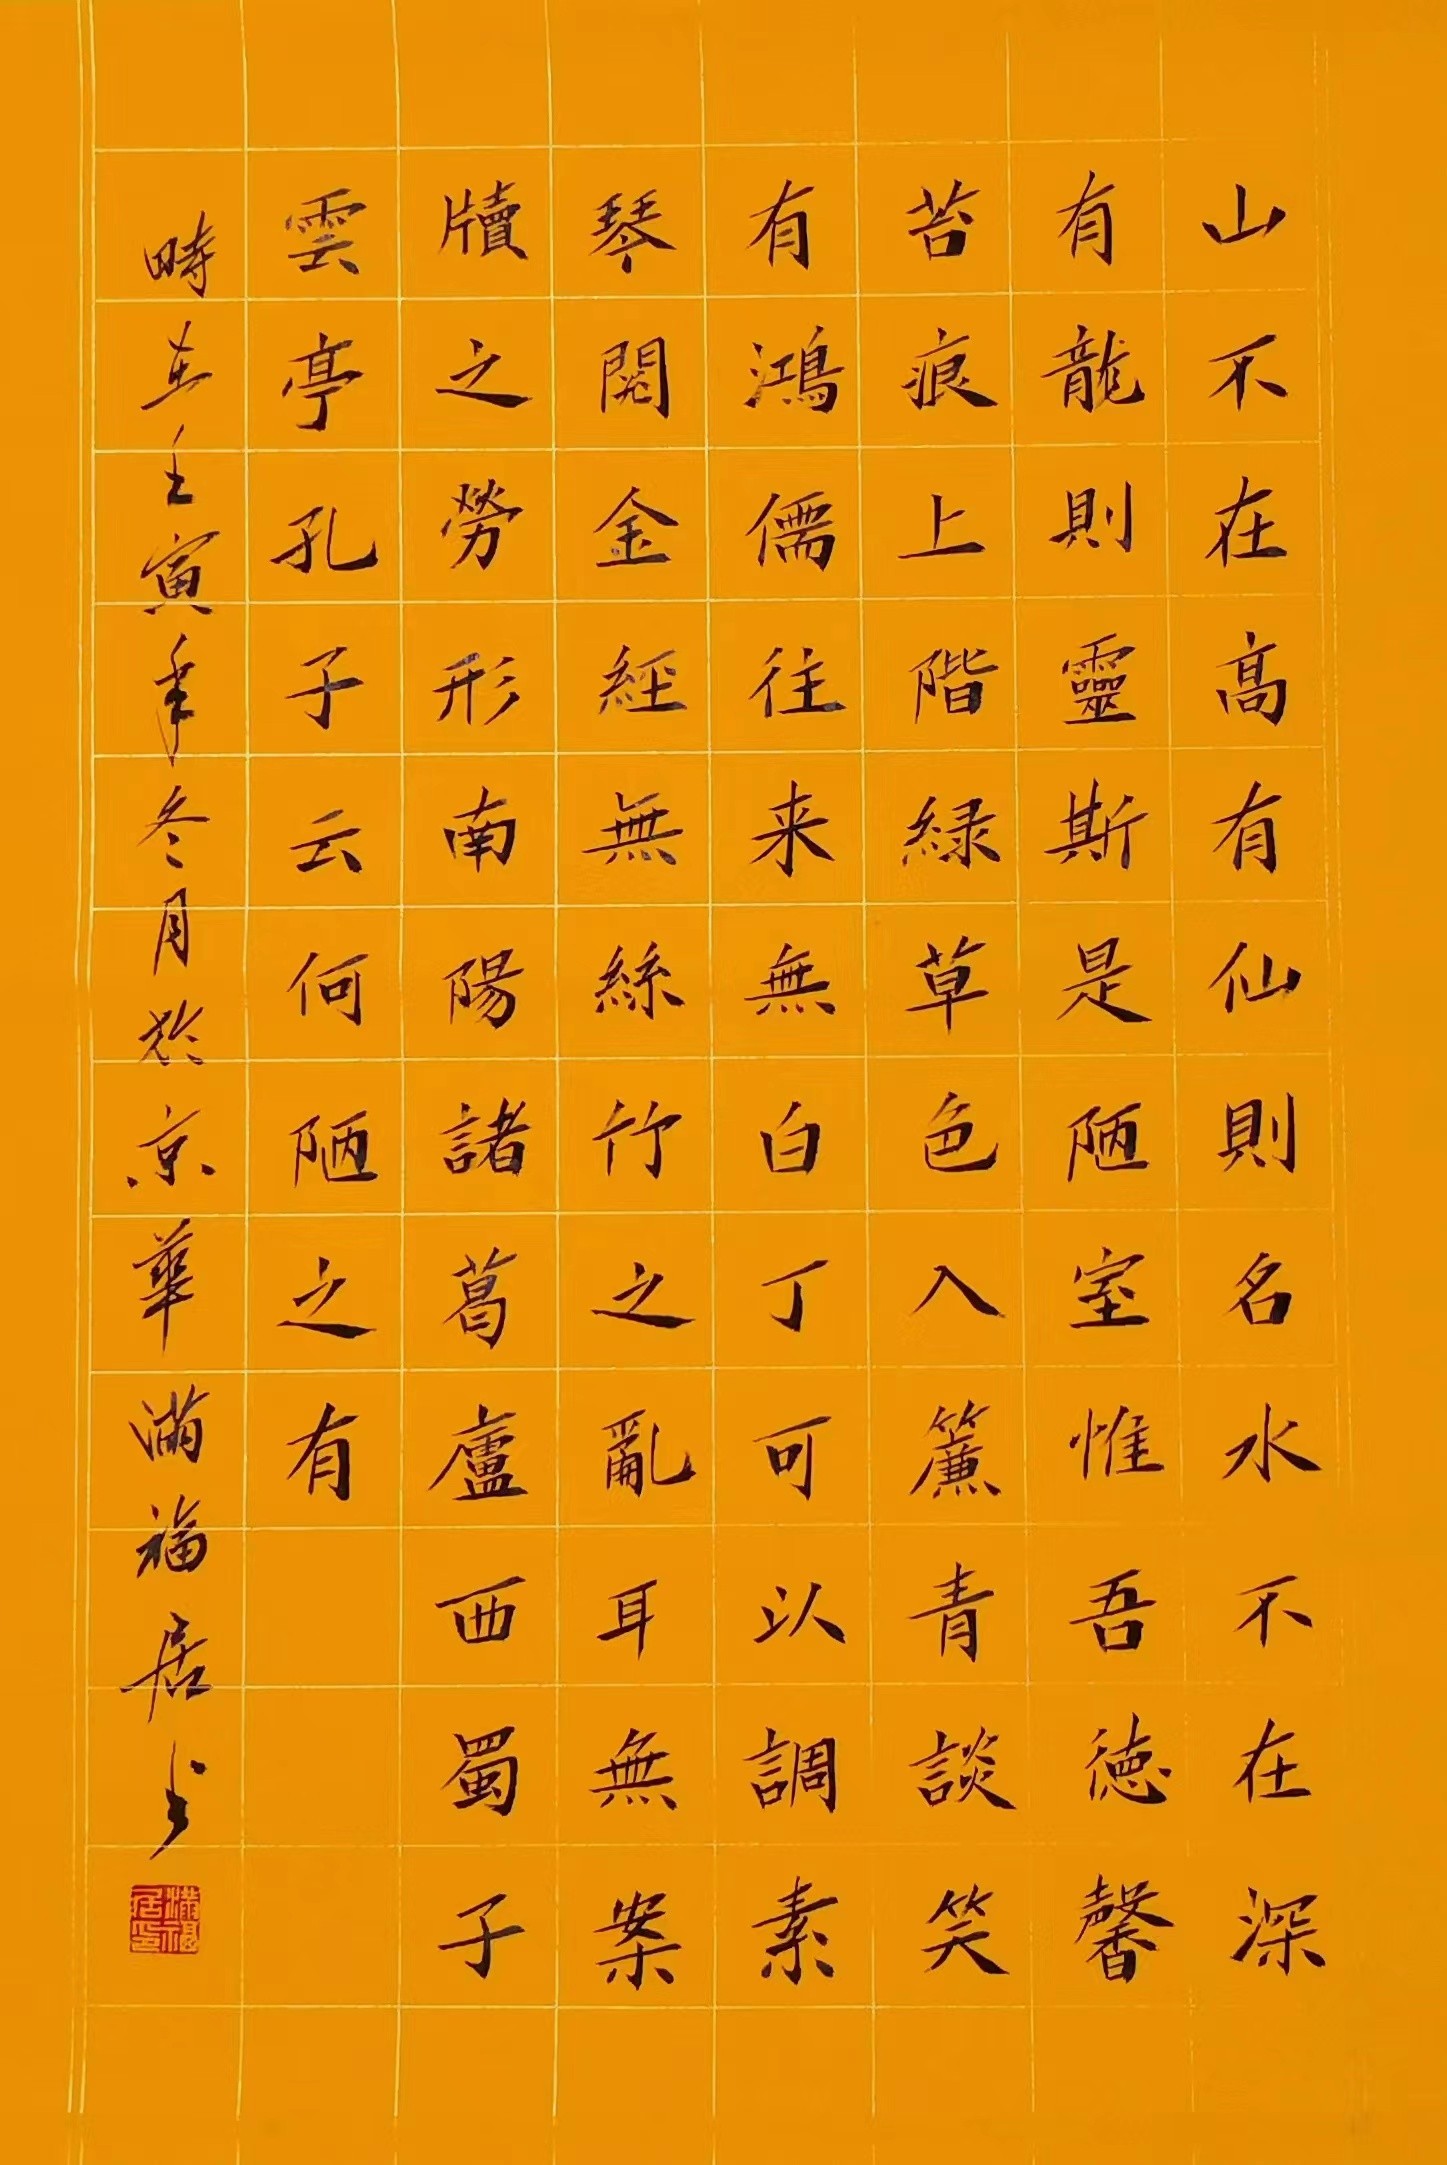 山不在高有仙則名水不在深
有龍則靈斯是陋室惟吾德馨
苔痕上階緑草色入簾青談笑
有鴻儒往来無白丁可以調素
琴閱金經無絲竹之亂耳無案
牘之勞形南陽諸葛廬西蜀子
雲亭孔子云何陋之有
時在壬寅年冬月於京華滿福居書
滿福居印